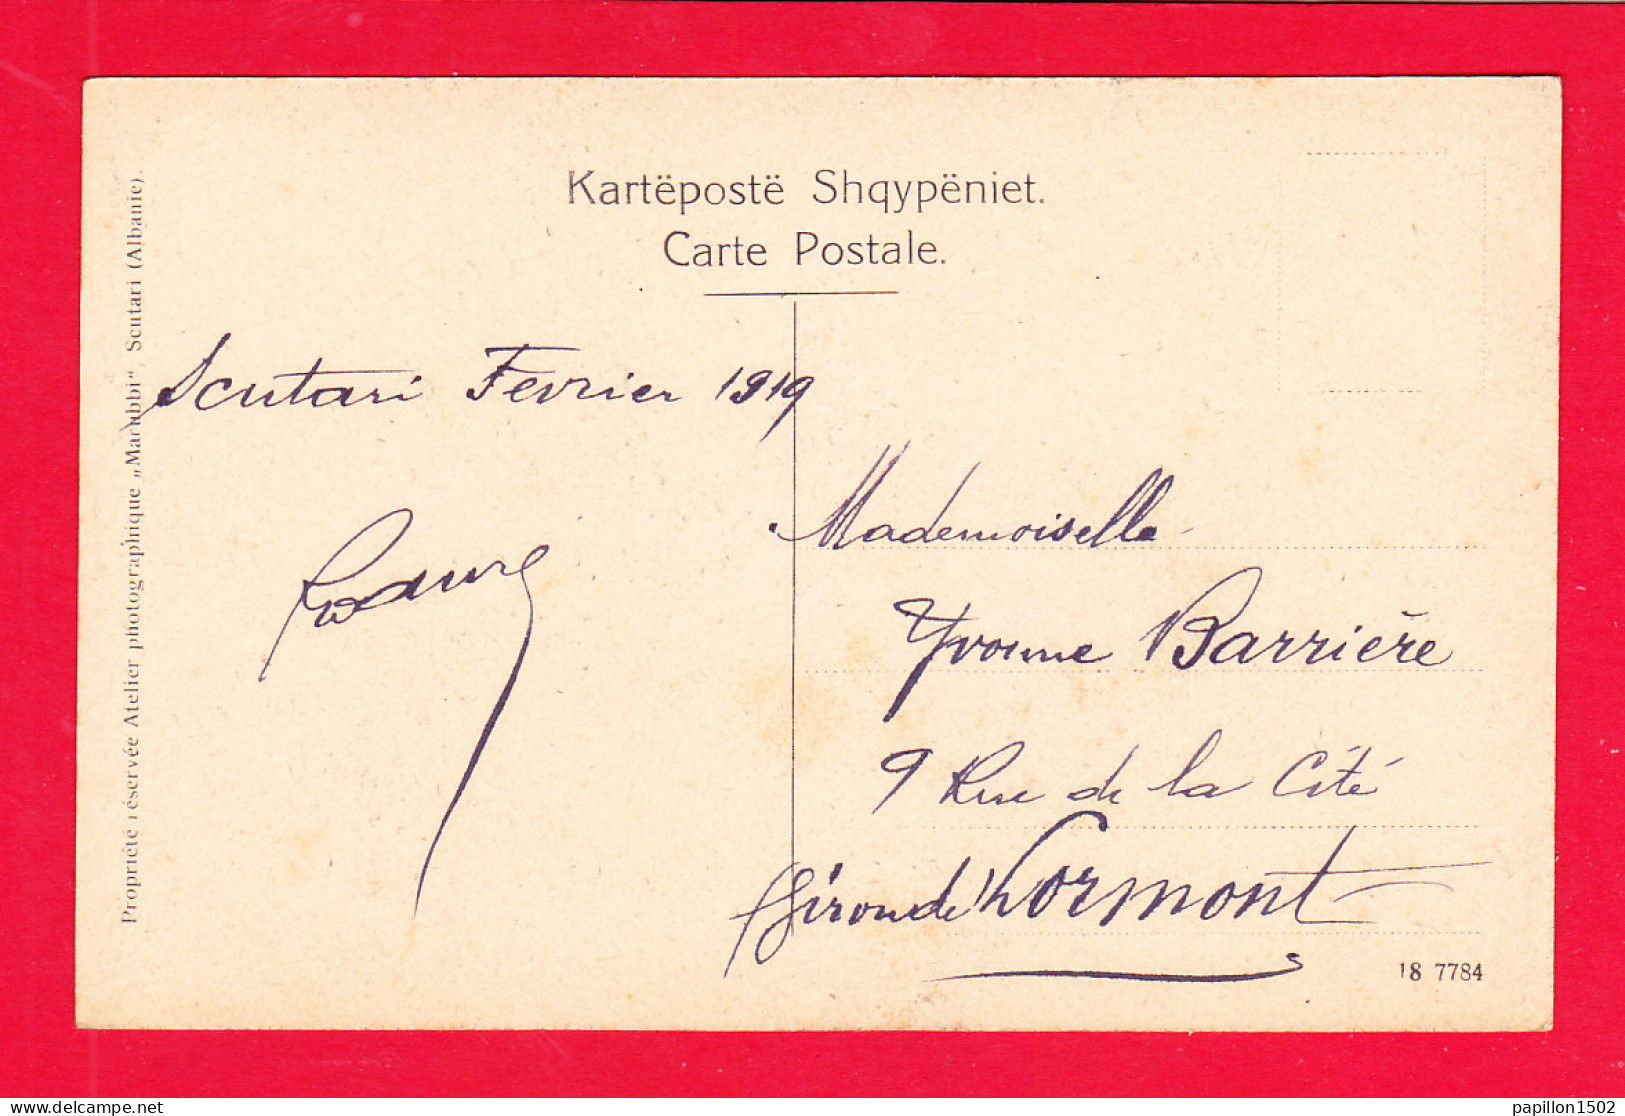 Kartëpostë Shqypëniet.
Carte Postale.
Propriété réservée Atelier photographique „Marubbi“, Scutari (Albanie).
Scutari Fevrier 1919
Mademoiselle
Yvonne Barrière
9 Rue de la Cité
Lormont
(Gironde)
18 7784
delcampe.net
papillon1502